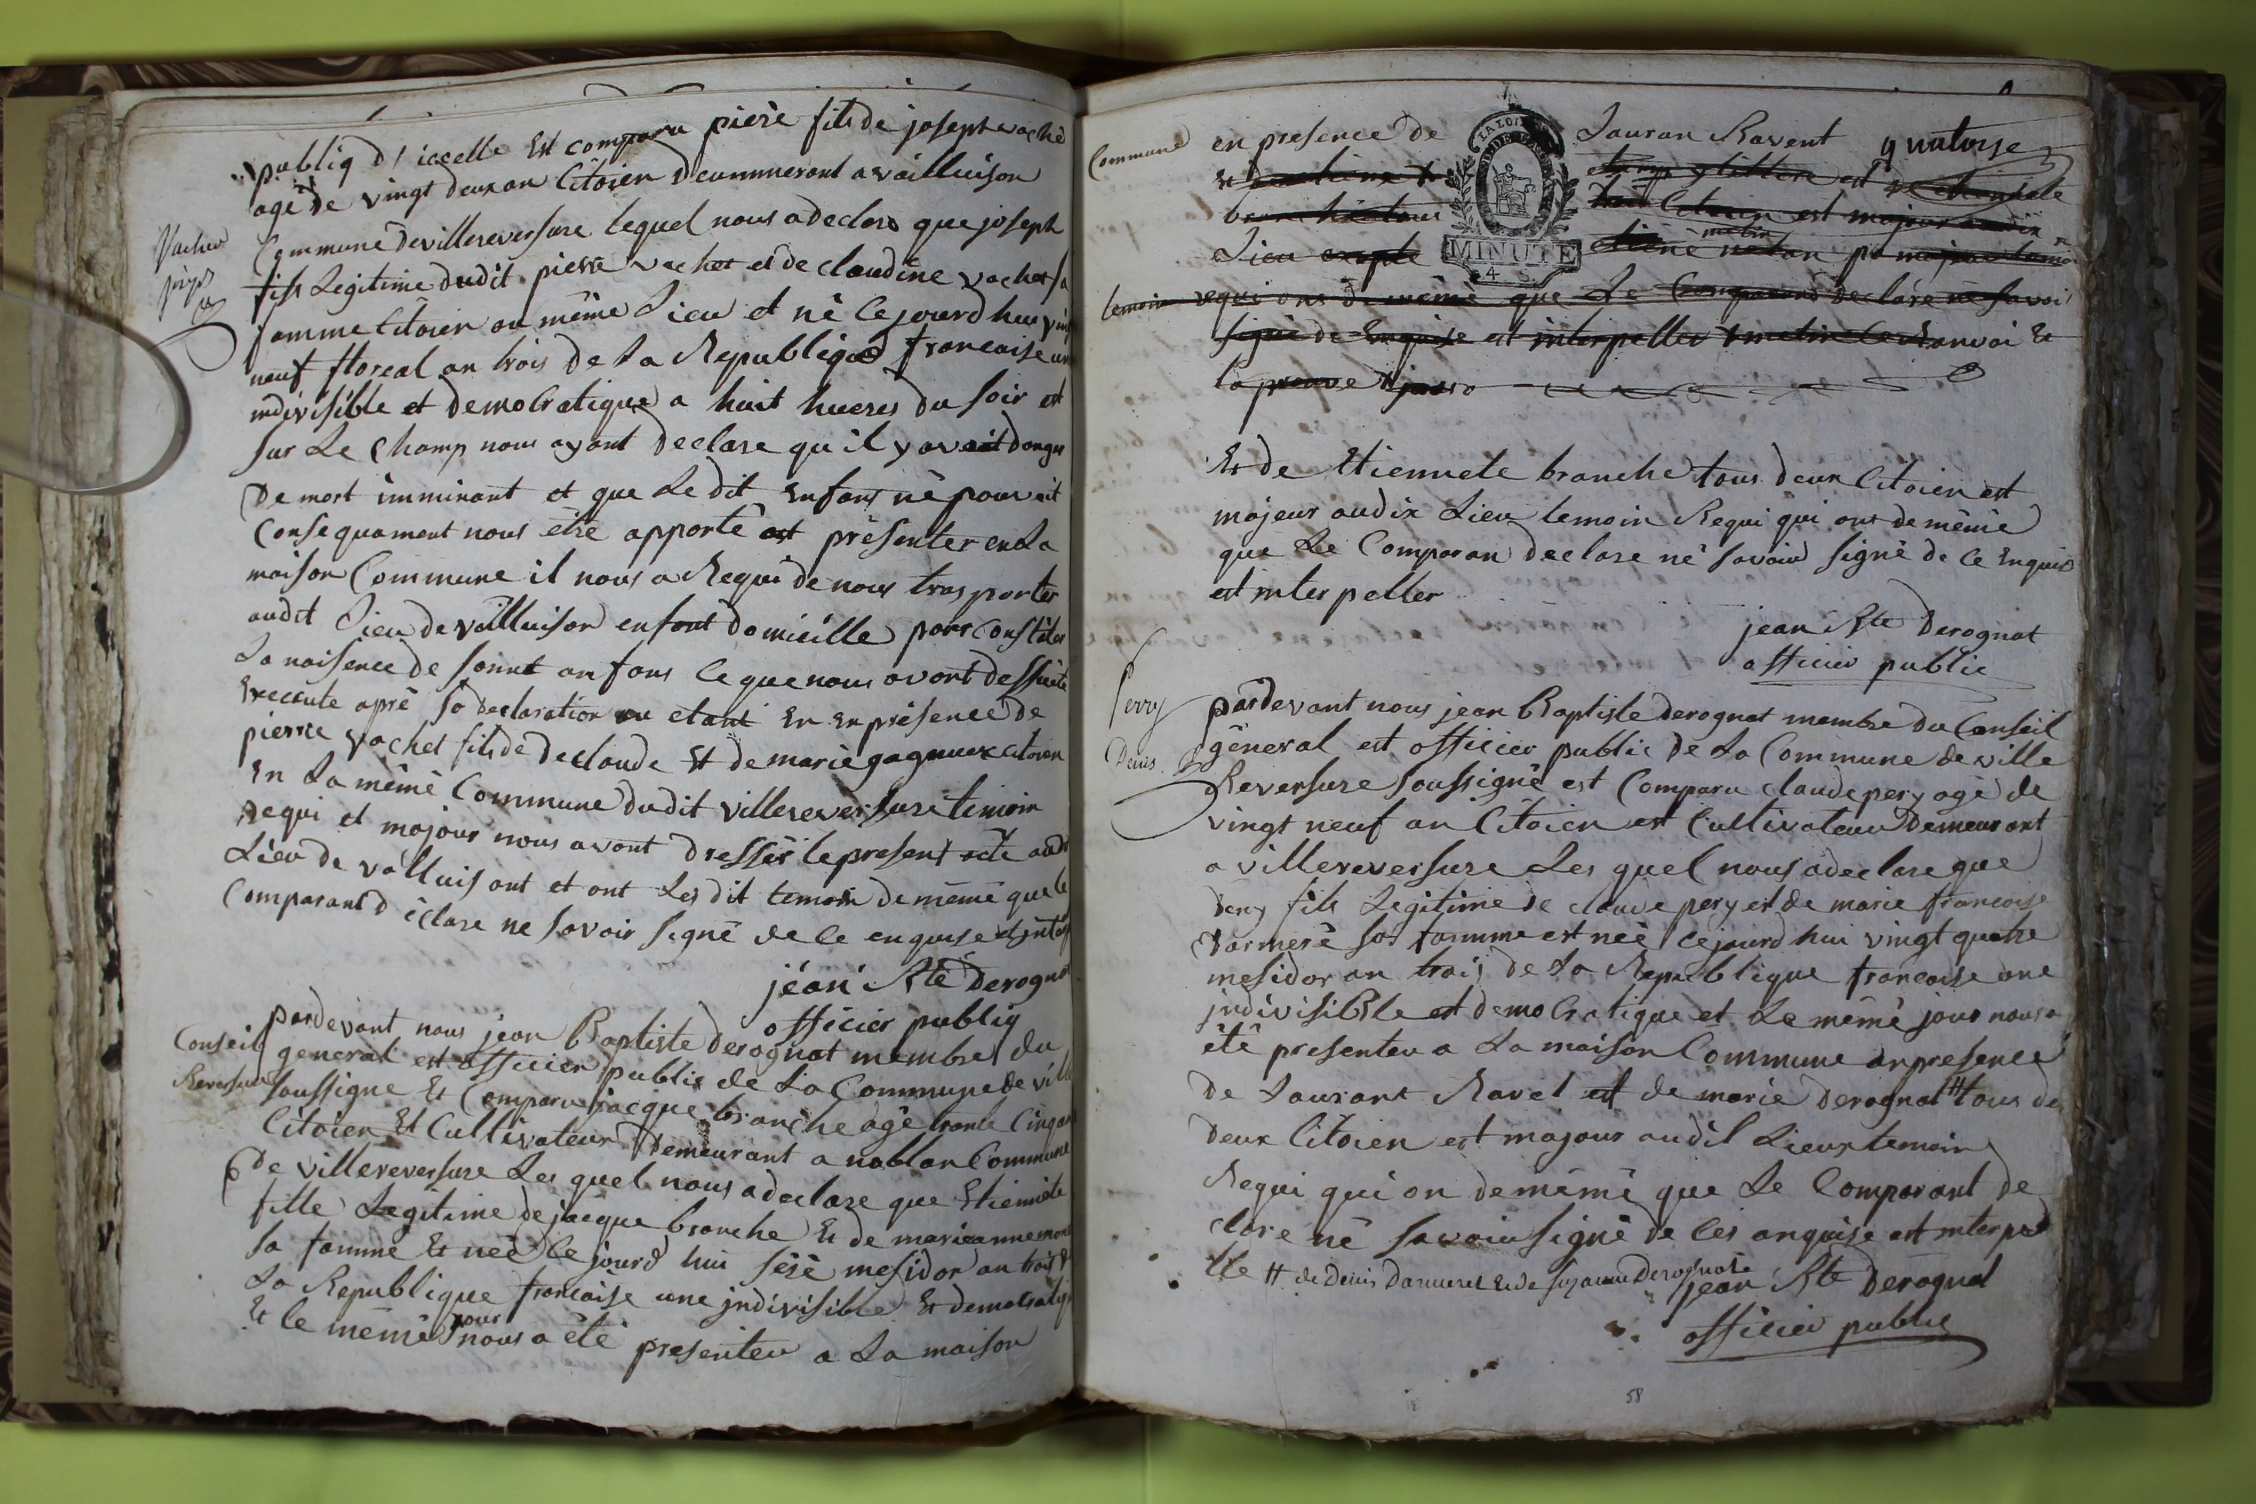 publiq d'iccelle Est comparu piere fils de joseph vachè
agè de vingt deux an Citoien deummerant a vailluison
Vacher
joseph
Commune devillereversure lequel nous a declaro que joseph
fils Legitime dudit pierre vachet et de claudine vachet sa
famme Citoien au même Lieu et nê Cejourd hui vin
neuf floreal an trois de La Republique francaise un
indivisible et democratique a huit hueres du soir est
sur Le Champ nous ayant declare qu'il y avait dange
de mort imminant et que Ledit Enfans nè pouvoit
Consequament nous être apportê est prèsenter en La
maison Commune il nous a Requi de nous trasporter
audit Lieu de vailluison enfant domicille pour Constater
La naisence de sonnt anfans Ce que nous avont dessuite
Execute aprê sa declaration en etant En en prèsence de
pierre vachet fils de declaude Et de marie gagneux citoien
En La mêmè Commune dudit villereversure timoin
Requi et majour nous avont dressér le present acte audi
Lieu de valluisont et ont Les dit temoin de mêmè que le
Comparant dèclare ne savoir signê de ce enquise et interp
jéan Bte Derogna
officier publiq
pardevant nous jean Baptiste derognat membre du
Conseil general est officier public de La Commune de ville
Reversure soussigne Et Comparu jacque branche agê trante Cinq an
Citoien Et Cultivateur demeurant a noblan Commune
de villereversure Les quel nous a declare que Etiennete
fille Legitime de jacque branche Et de marieanne
sa famme Et neè Ce jourd hui sêsè mesidor an trois d
La Republique francaise une jndivisible Et democratiq
Et le mêmè jour nous a êtè presenteu a La maison
Commune en presence de Lauran Ravent quatorse
Lieu
temoin requi ons de mêmè que Le Comparant declare ne savoi
signè de Enquise et interpeller
Et de Etiennete branche tous deux Citoien est
majeur audix Lieu temoin Requi qui ons de mêmè
que Le Comparan declare nè savoir signè de Ce Enquis
est interpeller
jean Bte Derognat
officier public
Perry
Denis
pardevant nous jean Baptiste derognat membre du Conseil
gèneral est officier public de La Commune de ville
Reversure soussignè est Comparu claude pery agè de
vingt neuf an Citoien est Cultivateur demeurant
a villereversure Les quel nous a declare que
deny fils Legitimè de claude pery et de marie francoise
darmerè sa famme est neè cejourd hui vingt quatre
mesidor an trois de La Republique francoise une
jndivisible est democratique et Le mêmè jour nous a
êtè presenteu a La maison Commune an presence
de Laurant Ravel et de marie derognat # tous de
deux Citoien est majour audit Lieux temoin
Requi qui on de mêmè que Le Comparant de
clare nê savoir signè de Ces anquise est interpe
lle # de Denis Darmeret Et de suzanne Derognat
jean Bte Derognat
officier public
58
LA LOI
MINUTE
4 S.